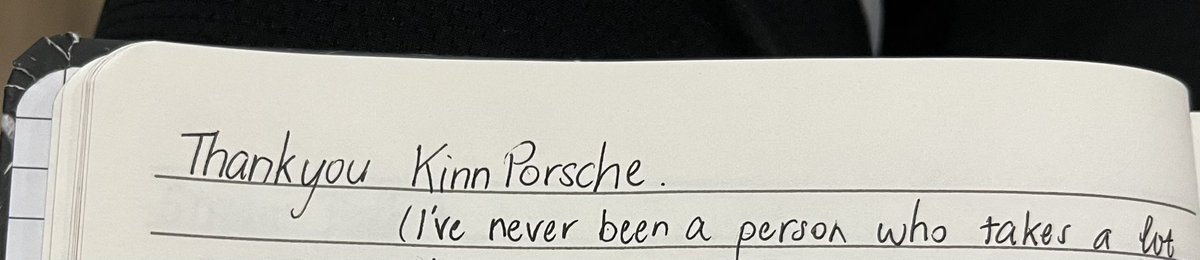 Thankyou KinnPorsche.
(I've never been a person who takes a lot